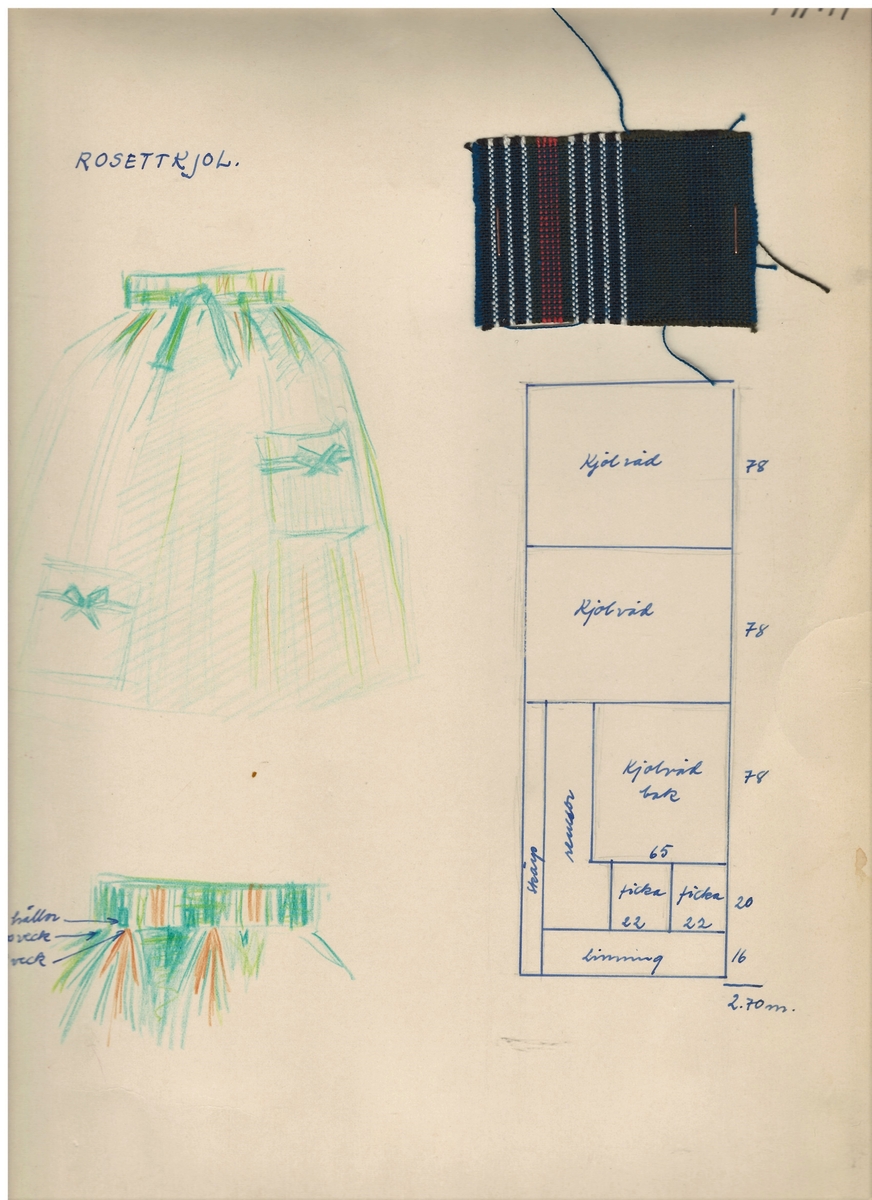 ROSETTKJOL.
Kjolvåd
78
Kjolvåd
78
Kjolvåd
bak
78
65
skärp
remsor
ficka
22
ficka
22
20
linning
16
2.70 m.
hällor
veck
veck